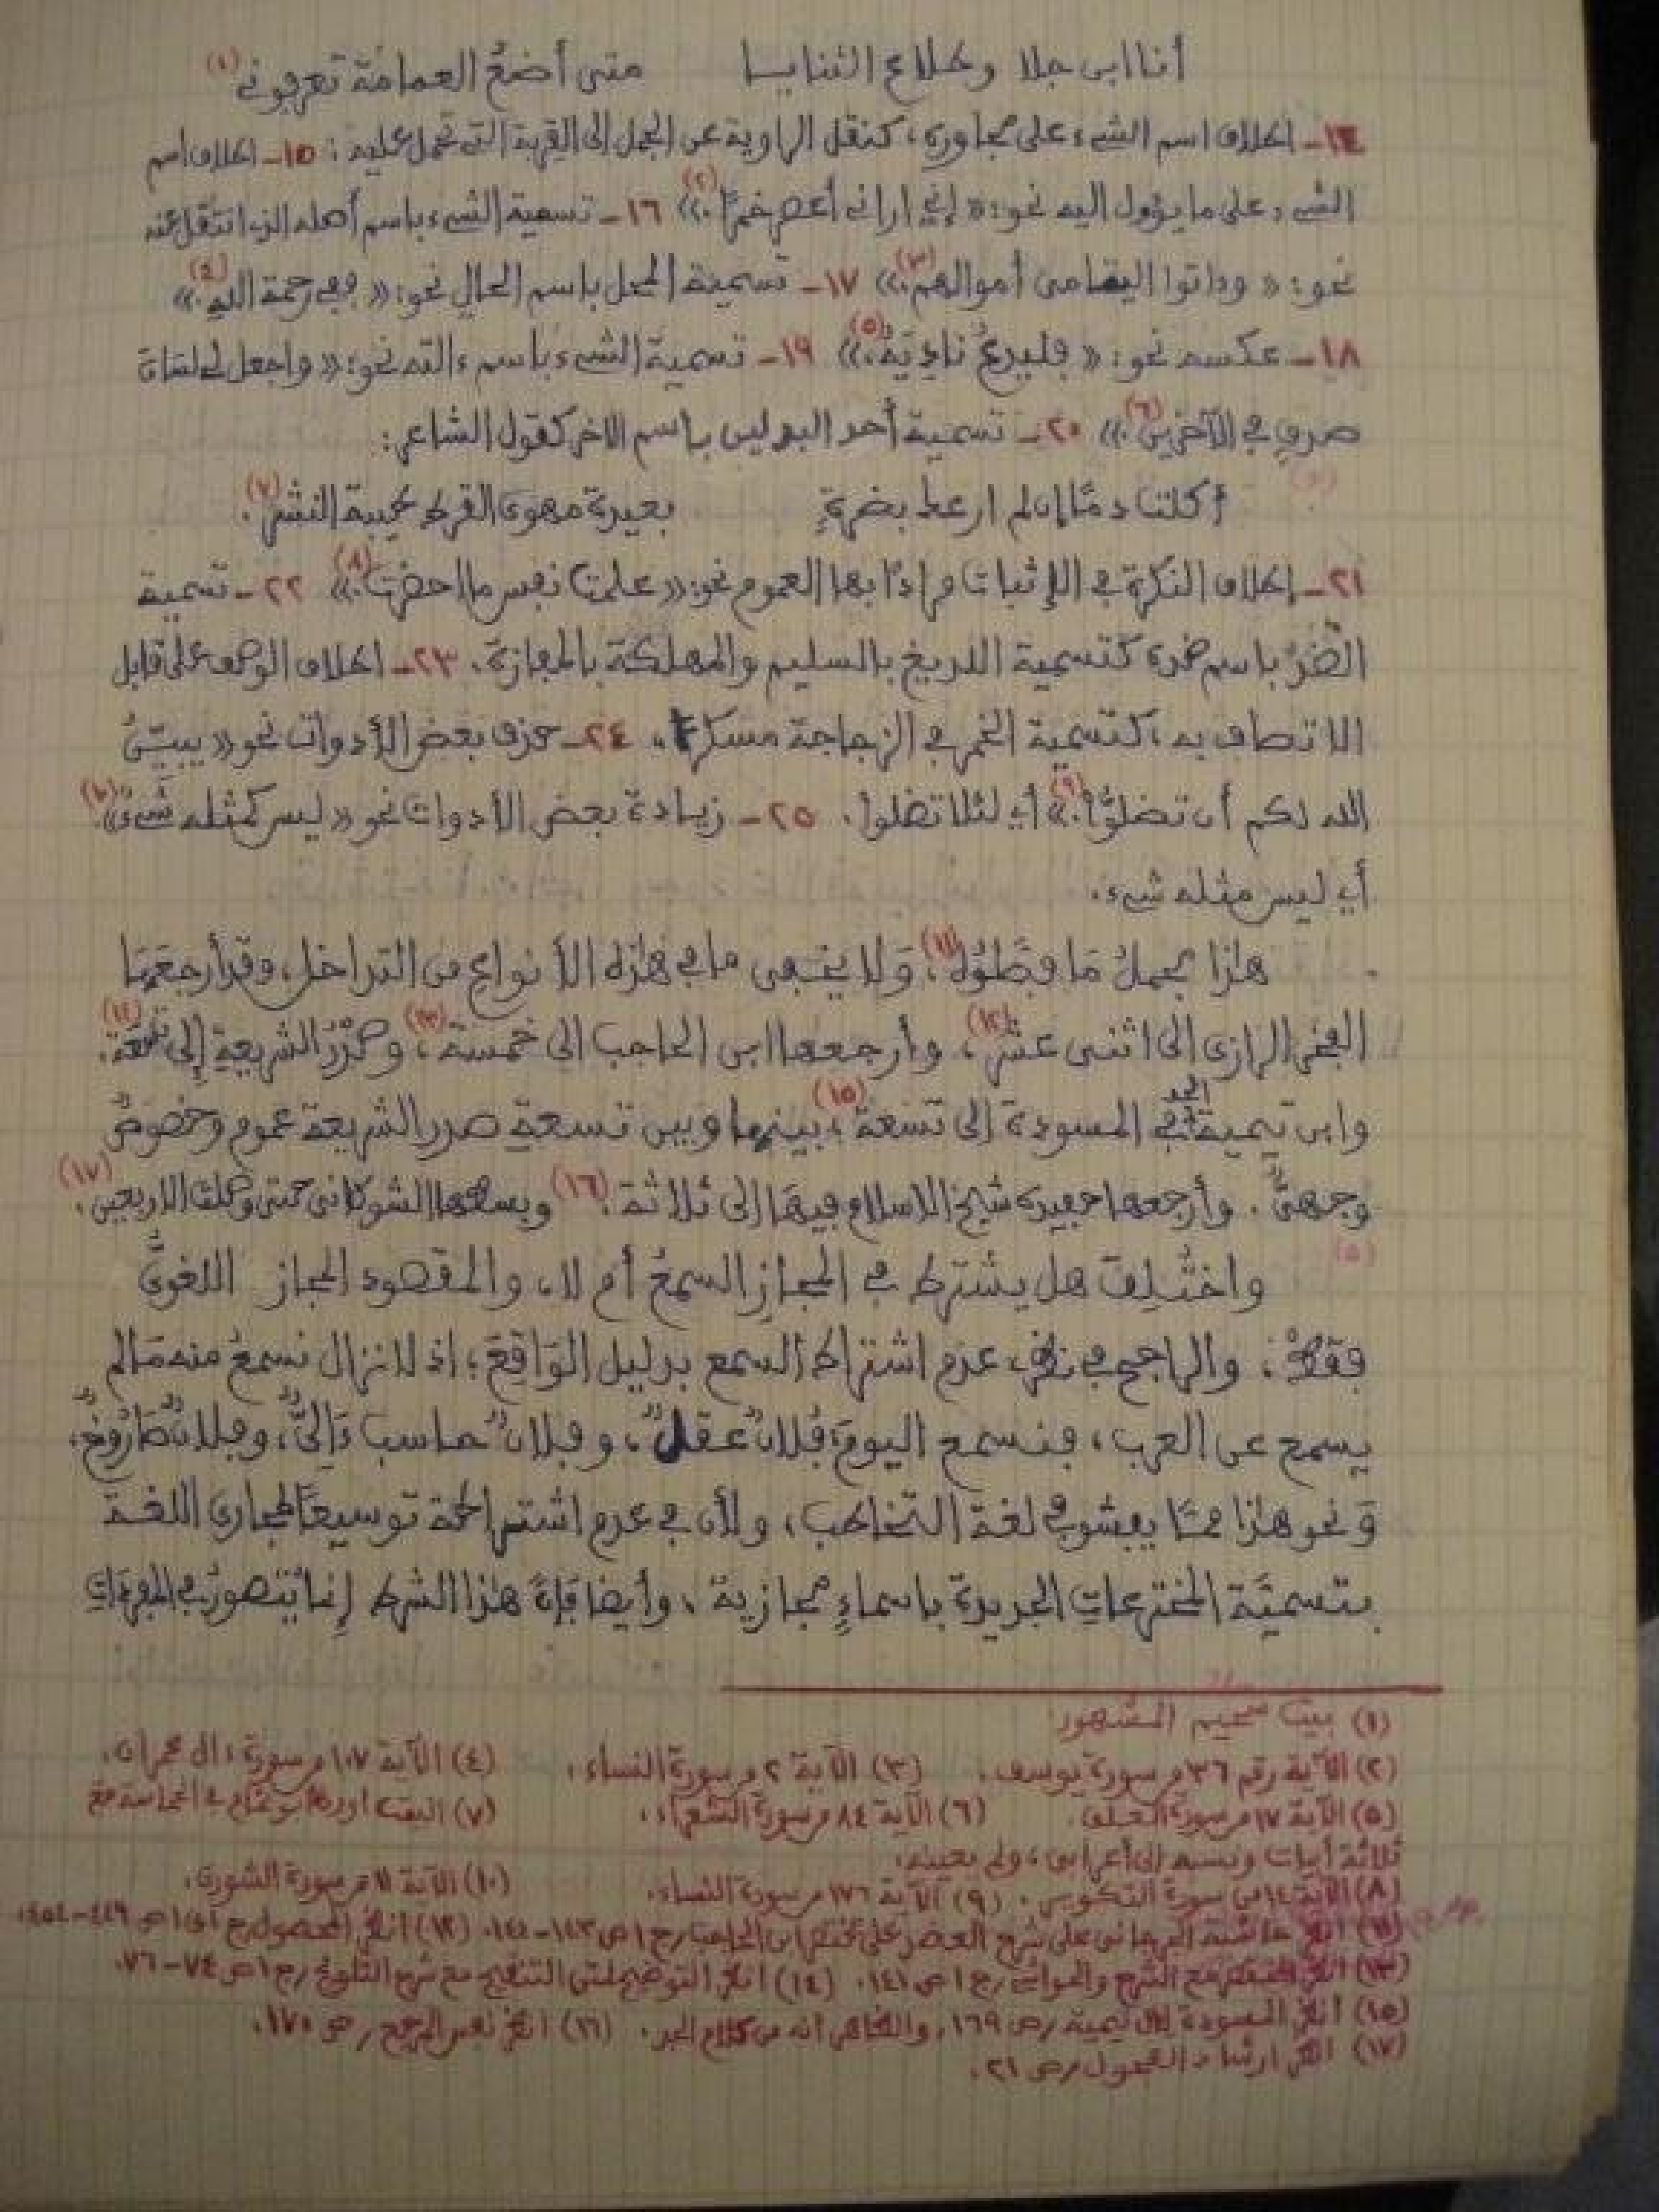 أنا ابن جلا وطلاع الثنايا متى أضعُ العمامة تعرفوني (١)
١٤ـ إطلاق اسم الشيء على مجاوره، كنقل الراوية عن الجمل إلى القربة التي تحمل عليه؛ ١٥ـ إطلاق اسم
الشيء على ما يؤول اليه نحو: «إني اراني أعصر خمرًا.» (٢) ١٦ـ تسمية الشيء باسم أصله الذي انتقل عنه
نحو: «وءاتوا اليتامى أموالهم.» (٣) ١٧ـ تسمية المحل باسم الحال نحو: «ففي رحمة الله.» (٤)
١٨ـ عكسه نحو: «فليدعُ ناديَهُ.» (٥) ١٩ـ تسمية الشيء باسم ءالته نحو: «واجعل لي لسان
صدقٍ في الآخرين.» (٦) ٢٠ـ تسمية أحد البدلين باسم الاخر كقول الشاعر:
أكلتُ دمًا إن لم ارعك بضرةٍ بعيدة مهوى القرط طيبة النشر. (٧)
٢١ـ إطلاق النكرة في الإثبات مرادًا بها العموم نحو: «علمت نفس ما احضرت.» (٨) ٢٢ـ تسمية
الضدّ باسم ضده كتسمية اللديغ بالسليم والمهلكة بالمفازة. ٢٣ـ اطلاق الوصف على قابل
الاتصاف به، كتسمية الخمر في الزجاجة مسكرا. ٢٤ـ حذف بعض الأدوات نحو «يبيّنُ
الله لكم أن تضلّوا.» (٩) أي لئلا تضلوا. ٢٥ـ زيادة بعض الأدوات نحو «ليس كمثله شيءٌ» (١٠)
أي ليس مثله شيء.
هاذا مجملُ مَا فصَّلوُه (١١)، وَلا يخفى ما في هاذه الأنواع من التداخل، وقد أرجعَهَا
الفخر الرازي الى اثنى عشر (١٢)، وأرجعها ابن الحاجب الى خمسة (١٣)، وصَدْرُ الشريعةِ إلى تسْعَة. (١٤)
وابن تيمية المجد في المسودة إلى تسْعة (١٥)، بينها وبين تسعةِ صدر الشريعة عموم وخصوصٌ
وجهىٌّ. وأرجعها حفيده شيخ الاسلام فيهَا إلى ثلاثة. (١٦) وبسطها الشوكاني حتى وصلت الاربعين. (١٧)
واختُلِفَ هل يشترط في المجازِ السمعُ أم لا، والمقصود المجاز اللغويُّ
فقطْ؛ والراجح في نظري عدم اشتراط السمع بدليل الوَاقِعِ؛ اذ لا نزال نسمعُ منه مَا لم
يسمع عن العرب، فنسمع اليومَ فُلانٌ عقلٌ، وفلانٌ حاسب ءَاليٌّ، وفلانٌ صَارُوخٌ،
وَنحو هاذا ممَّا يفشو في لغة التخاطب، ولأن في عدم اشتراطه توسيعًا لمجارى اللغة
بتسميَة المخترعاتِ الجديدة باسماءٍ مجازية، وأيضا فَإنَّ هاذا الشرط إنما يُتصورُ في المفردَاتِ
(١) بيت سحيم المشهور
(٢) الآية رقم ٣٦ من سورة يوسف. (٣) الآية ٢ من سورة النساء. (٤) الآية ١٠٧ من سورة ءال عمران.
(٥) الآية ١٧ من سورة العلق. (٦) الآية ٨٤ من سورة الشعراء. (٧) البيت اورده أبو تمام في الحماسة مع
ثلاثة أبيات ونسبه إلى أعرابي، ولم يعينه.
(٨) الآية ١٤ من سورة التكوير. (٩) الآية ١٧٦ من سورة النساء. (١٠) الآية ١١ من سورة الشورى.
(١١) انظر حاشية الجرجاني على شرح العضد على مختصر ابن الحاجب ج ١ ص ١٤٢-١٤٣. (١٢) انظر المحصول ج ١ ص ٤٤٩-٤٥٤.
(١٣) انظر المختصر مع الشرح والحواشي ج ١ ص ١٤١. (١٤) انظر التوضيح لمتن التنقيح مع شرح التلويح ج ١ ص ٧٤-٧٦.
(١٥) انظر المسودة لآل تيمية ص ١٦٩، والظاهر انه من كلام الجد. (١٦) انظر نفس المرجع ص ١٧٠.
(١٧) انظر ارشاد الفحول ص ٢١.